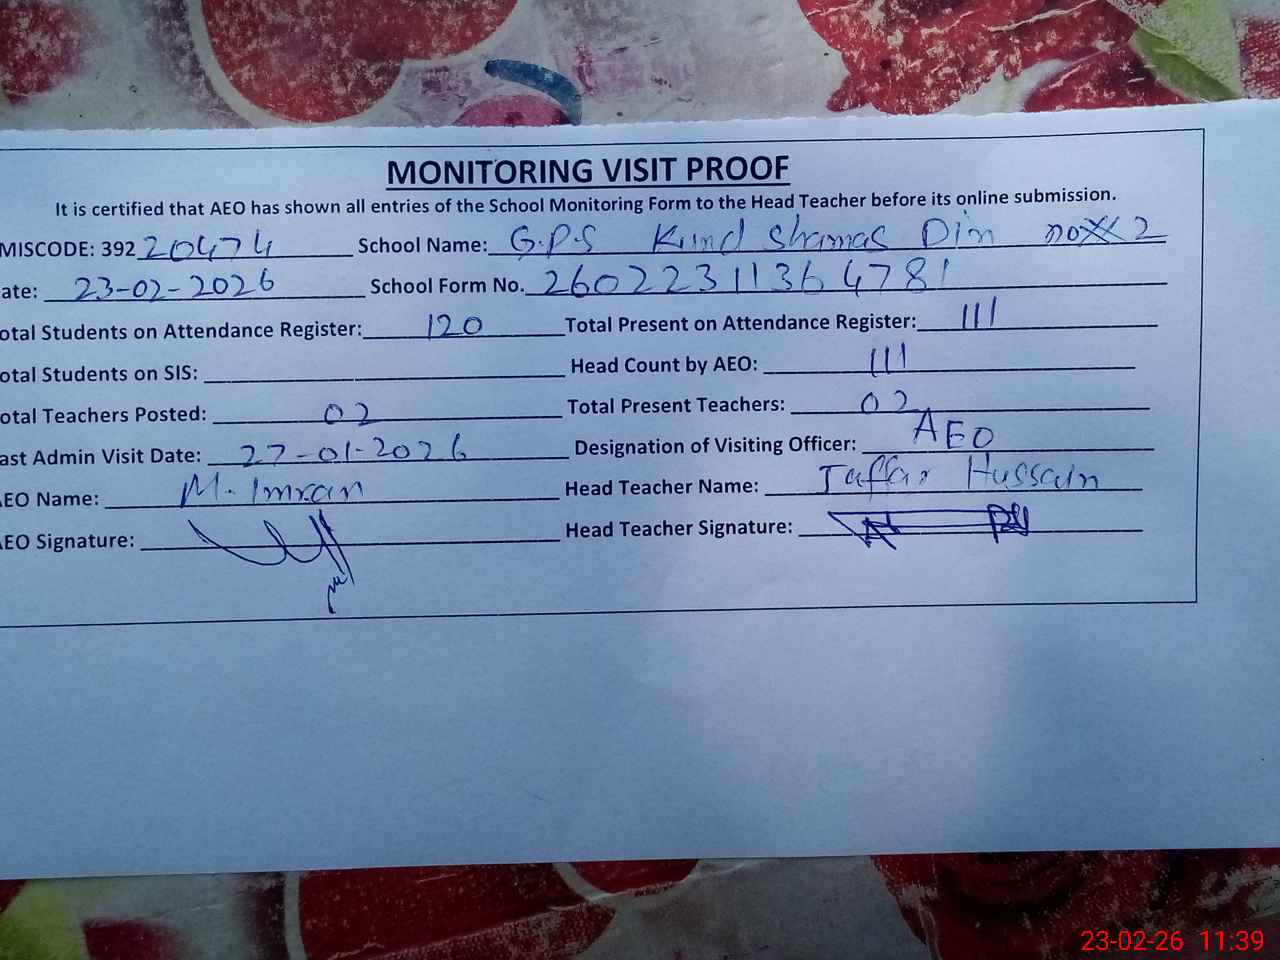 MONITORING VISIT PROOF
It is certified that AEO has shown all entries of the School Monitoring Form to the Head Teacher before its online submission.
MISCODE: 392 20474 School Name: G.P.S Kund Shamas Din no 2
ate: 23-02-2026 School Form No. 26022311364781
otal Students on Attendance Register: 120 Total Present on Attendance Register: 111
otal Students on SIS: Head Count by AEO: 111
otal Teachers Posted: 02 Total Present Teachers: 02
ast Admin Visit Date: 27-01-2026 Designation of Visiting Officer: AEO
AEO Name: M. Imran Head Teacher Name: Jaffar Hussain
AEO Signature: Head Teacher Signature:
23-02-26 11:39